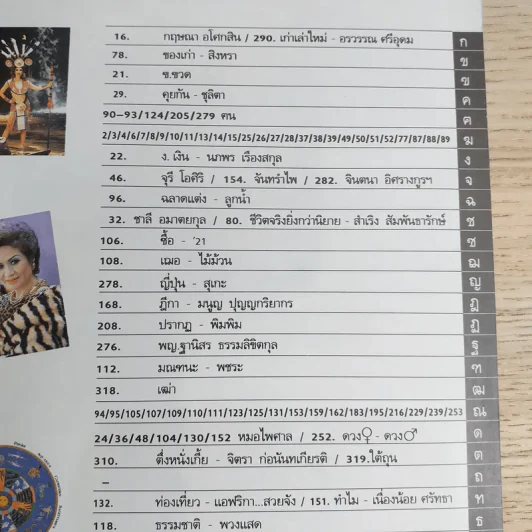 16. กฤษณา อโศกสิน / 290. เก่าเล่าใหม่ - อรวรรณ ศรีอุดม ก
78. ของเก่า - สิงหรา ข
21. ฃ.ขวด ฃ
29. คุยกัน - ชุลิตา ค
90-93/124/205/279 ฅน ฅ
2/3/4/6/7/8/9/10/11/13/14/15/25/26/27/28/37/38/39/49/50/51/52/77/87/88/89 ฆ
22. ง. เงิน - นภพร เรืองสกุล ง
46. จุรี โอศิริ / 154. จันทรำไพ / 282. จินตนา อิศรางกูรฯ จ
96. ฉลาดแต่ง - ลูกน้ำ ฉ
32. ชาลี อมาตยกุล / 80. ชีวิตจริงยิ่งกว่านิยาย - สำเริง สัมพันธารักษ์ ช
106. ซื้อ - '21 ซ
108. เฌอ - ไม้ม้วน ฌ
278. ญี่ปุ่น - สุเกะ ญ
168. ฎีกา - มนูญ ปุญญกริยากร ฎ
208. ปรากฏ - พิมพิม ฏ
276. พญ.ฐานิสร ธรรมลิขิตกุล ฐ
112. มณฑนะ - พชระ ฑ
318. เฒ่า ฒ
94/95/105/107/109/110/111/123/125/131/153/159/162/183/195/216/229/239/253 ณ
24/36/48/104/130/152 หมอไพศาล / 252. ดวง♀ - ดวง♂ ด
310. ตึ่งหนั่งเกี้ย - จิตรา ก่อนันทเกียรติ / 319.ใต้ถุน ต
– ถ
132. ท่องเที่ยว - แอฟริกา...สวยจัง / 151. ทำไม - เนื่องน้อย ศรัทธา ท
118. ธรรมชาติ - พวงแสด ธ